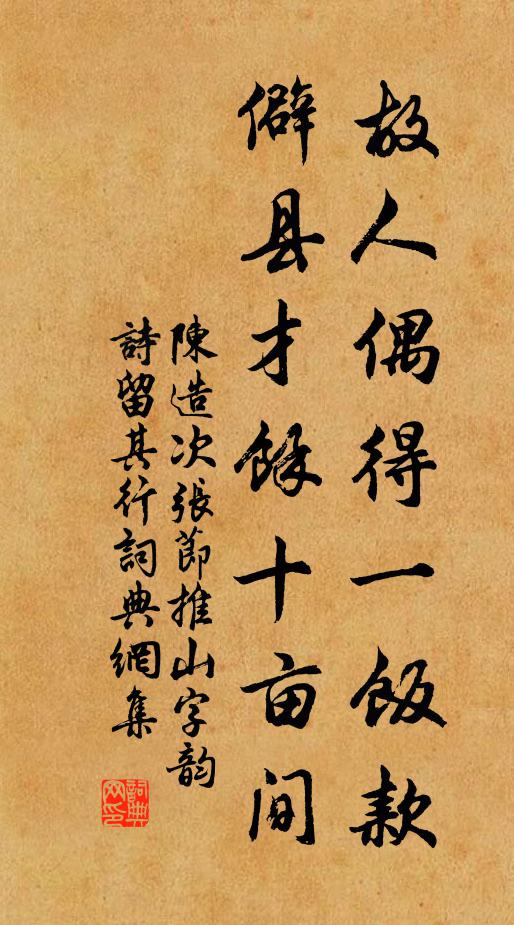 故人偶得一飯款
僻县才餘十亩間
陳造次張節推山字韵
詩留其行詞典網集
詞典
网印